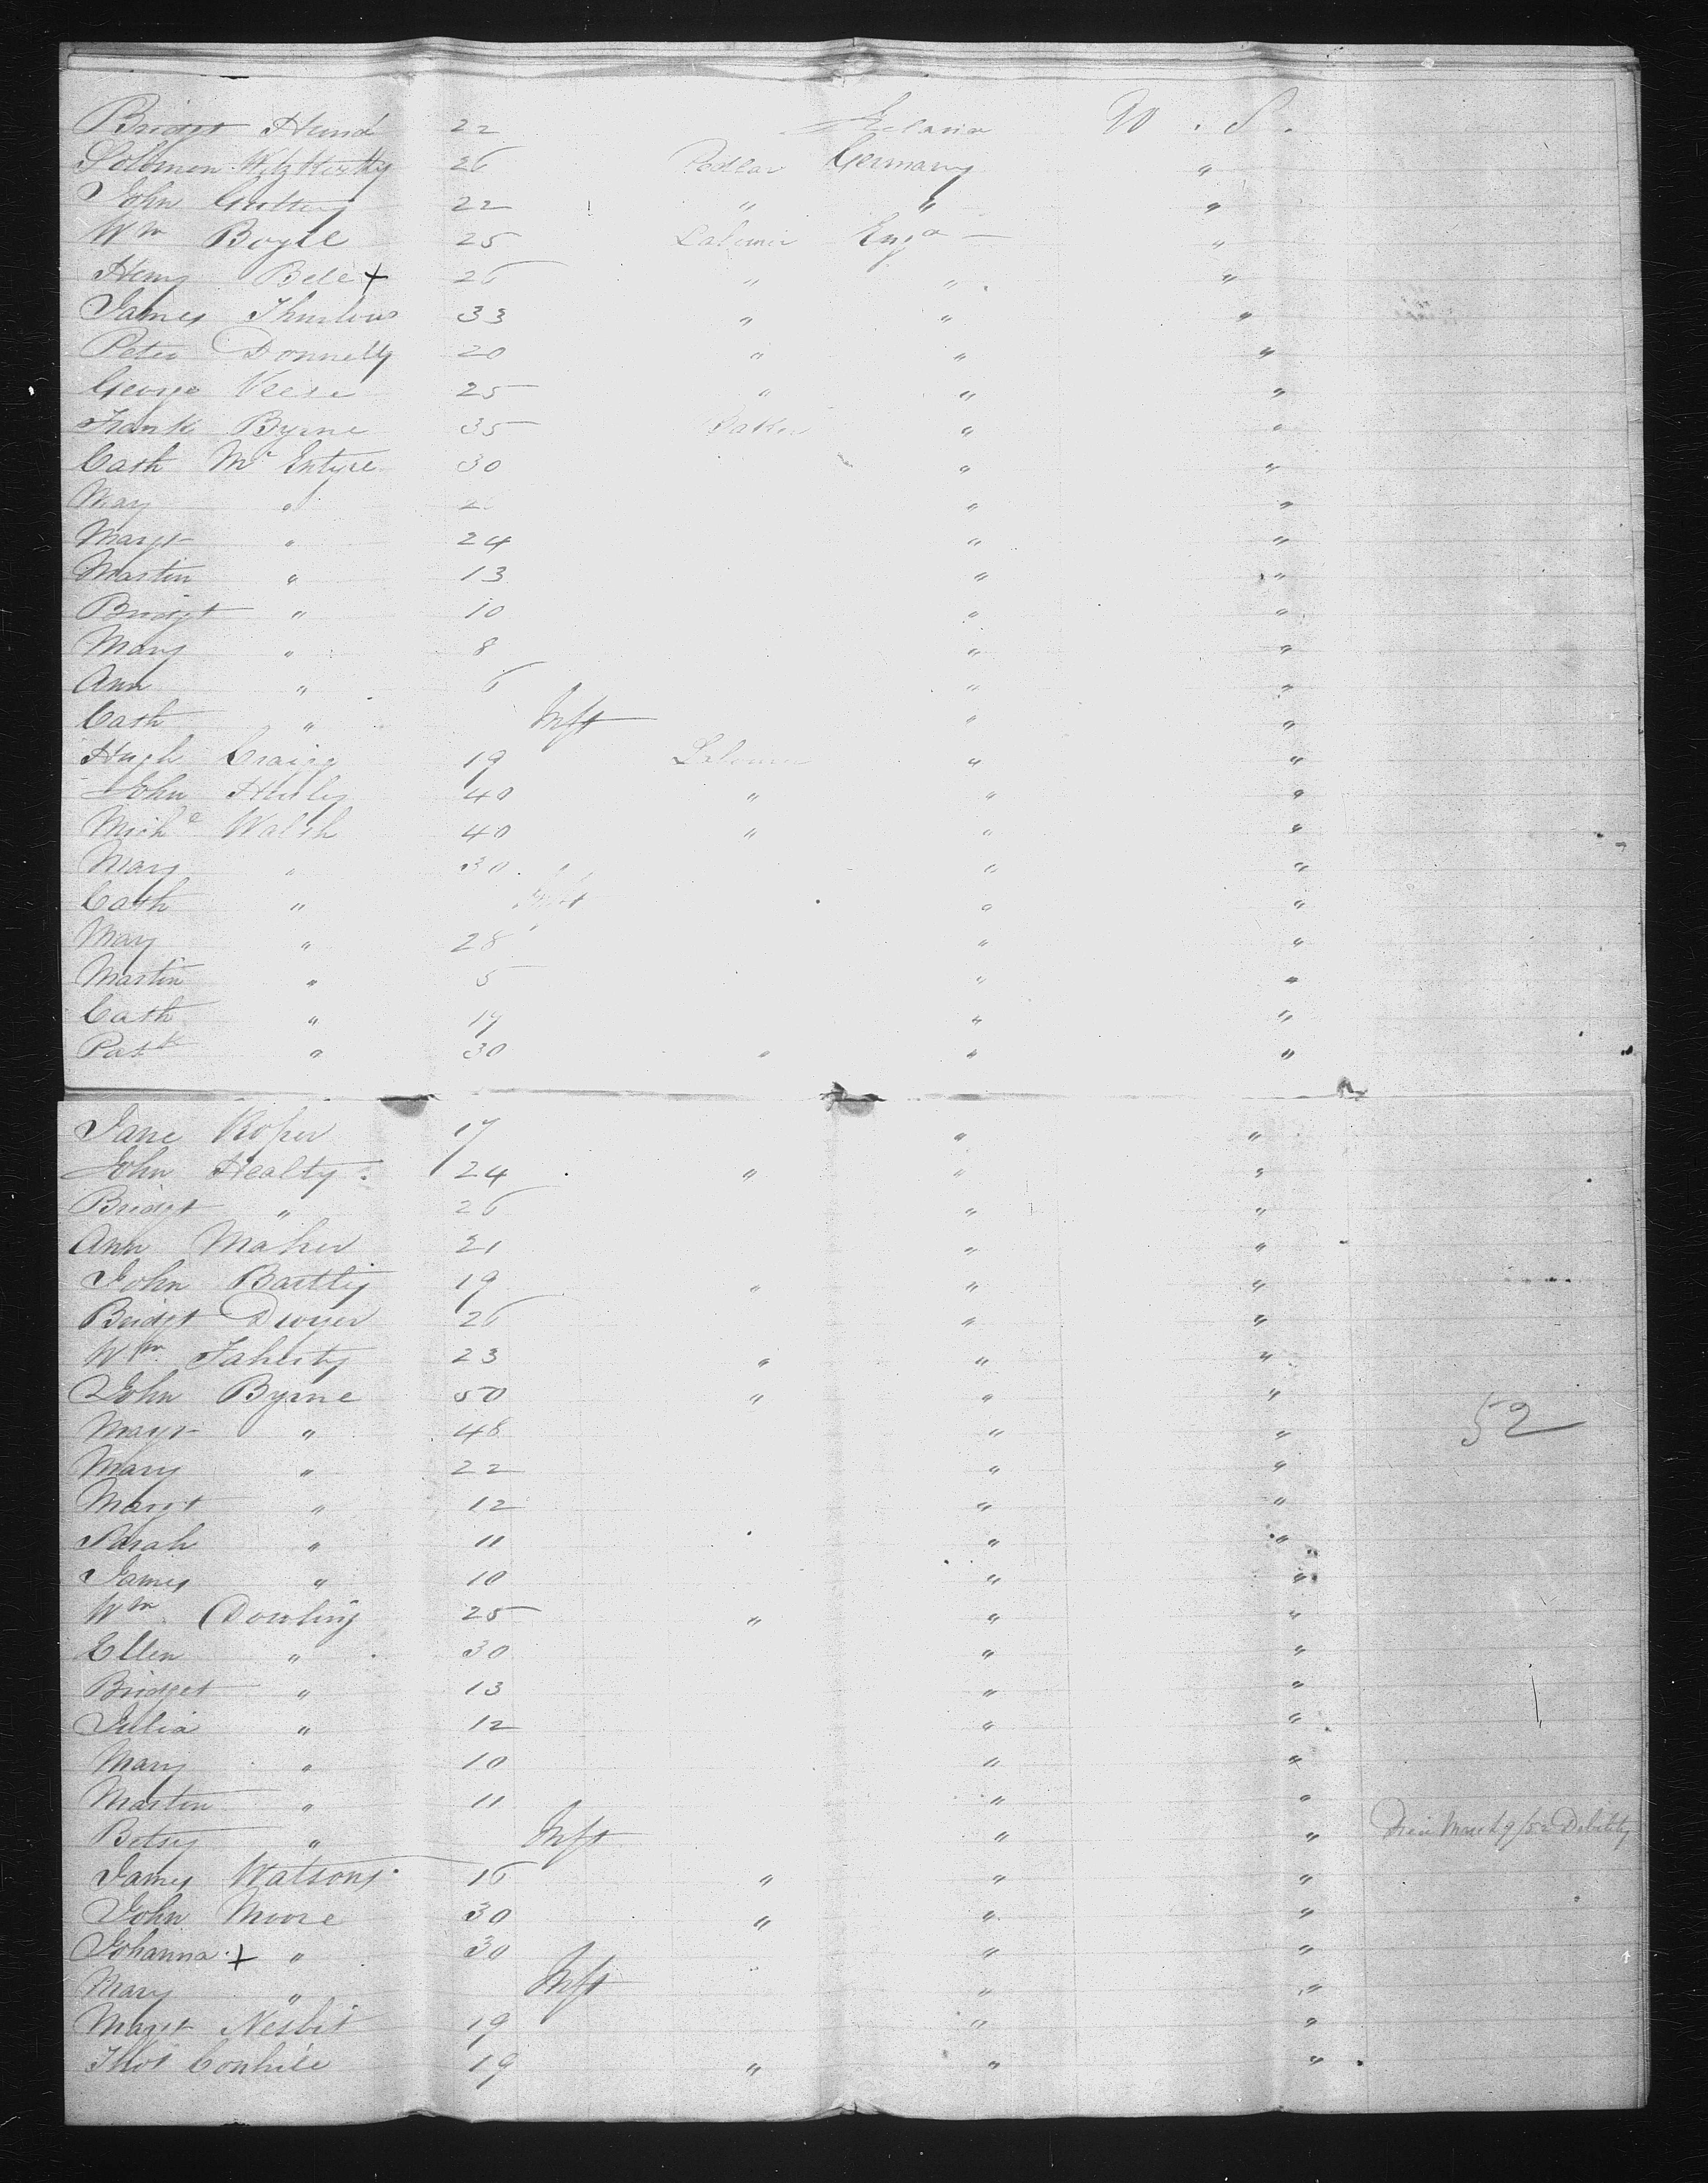 Bridgt Hund 22 Ireland U . S .
Sollomon 26 Pedlar Germany "
John 22 " " "
Wm Boyle 25 Labourer Engd "
Henry Bele + 26 " " "
James Thurlow 33 " " "
Peter Donnelly 20 " " "
George 25 " " "
Frank Byrne 35 " "
Cath Mc Entyre 30 " "
Mary " " "
Margt " 24 " "
Martin " 13 " "
Bridgt " 10 " "
Mary " 8 " "
Ann " 6 " "
Cath " Inft " "
Hugh Craig 19 Labourer " "
John 40 " " "
Miche Walsh 40 " " "
Mary " 30 " "
Cath " Inft " "
Mary " 28 " "
Martin " 5 " "
Cath " 17 " "
Patk " 30 " " "
Jane Roper 17 " "
John Healty 24 " " "
Bridgt " 26 " "
Ann Maher 21 " "
John Bartley 19 " " "
Bridgt Dwyer 26 " "
Wm Faherty 23 " " "
John Byrne 50 " " "
Margt " 48 " " 52
Mary " 22 " "
Margt " 12 " "
Sarah " 11 " "
James " 10 " "
Wm Dowling 25 " " "
Ellen " 30 " "
Bridget " 13 " "
Julia " 12 " "
Mary " 10 " "
Martin " 11 " "
Betsy " Inft " " Died March 9/52 Debility
James Watson 16 " " "
John Moore 30 " " "
Johanna + " 30 " "
Mary " Inft " "
Margt Nesbit 19 " "
Thos 19 " " "